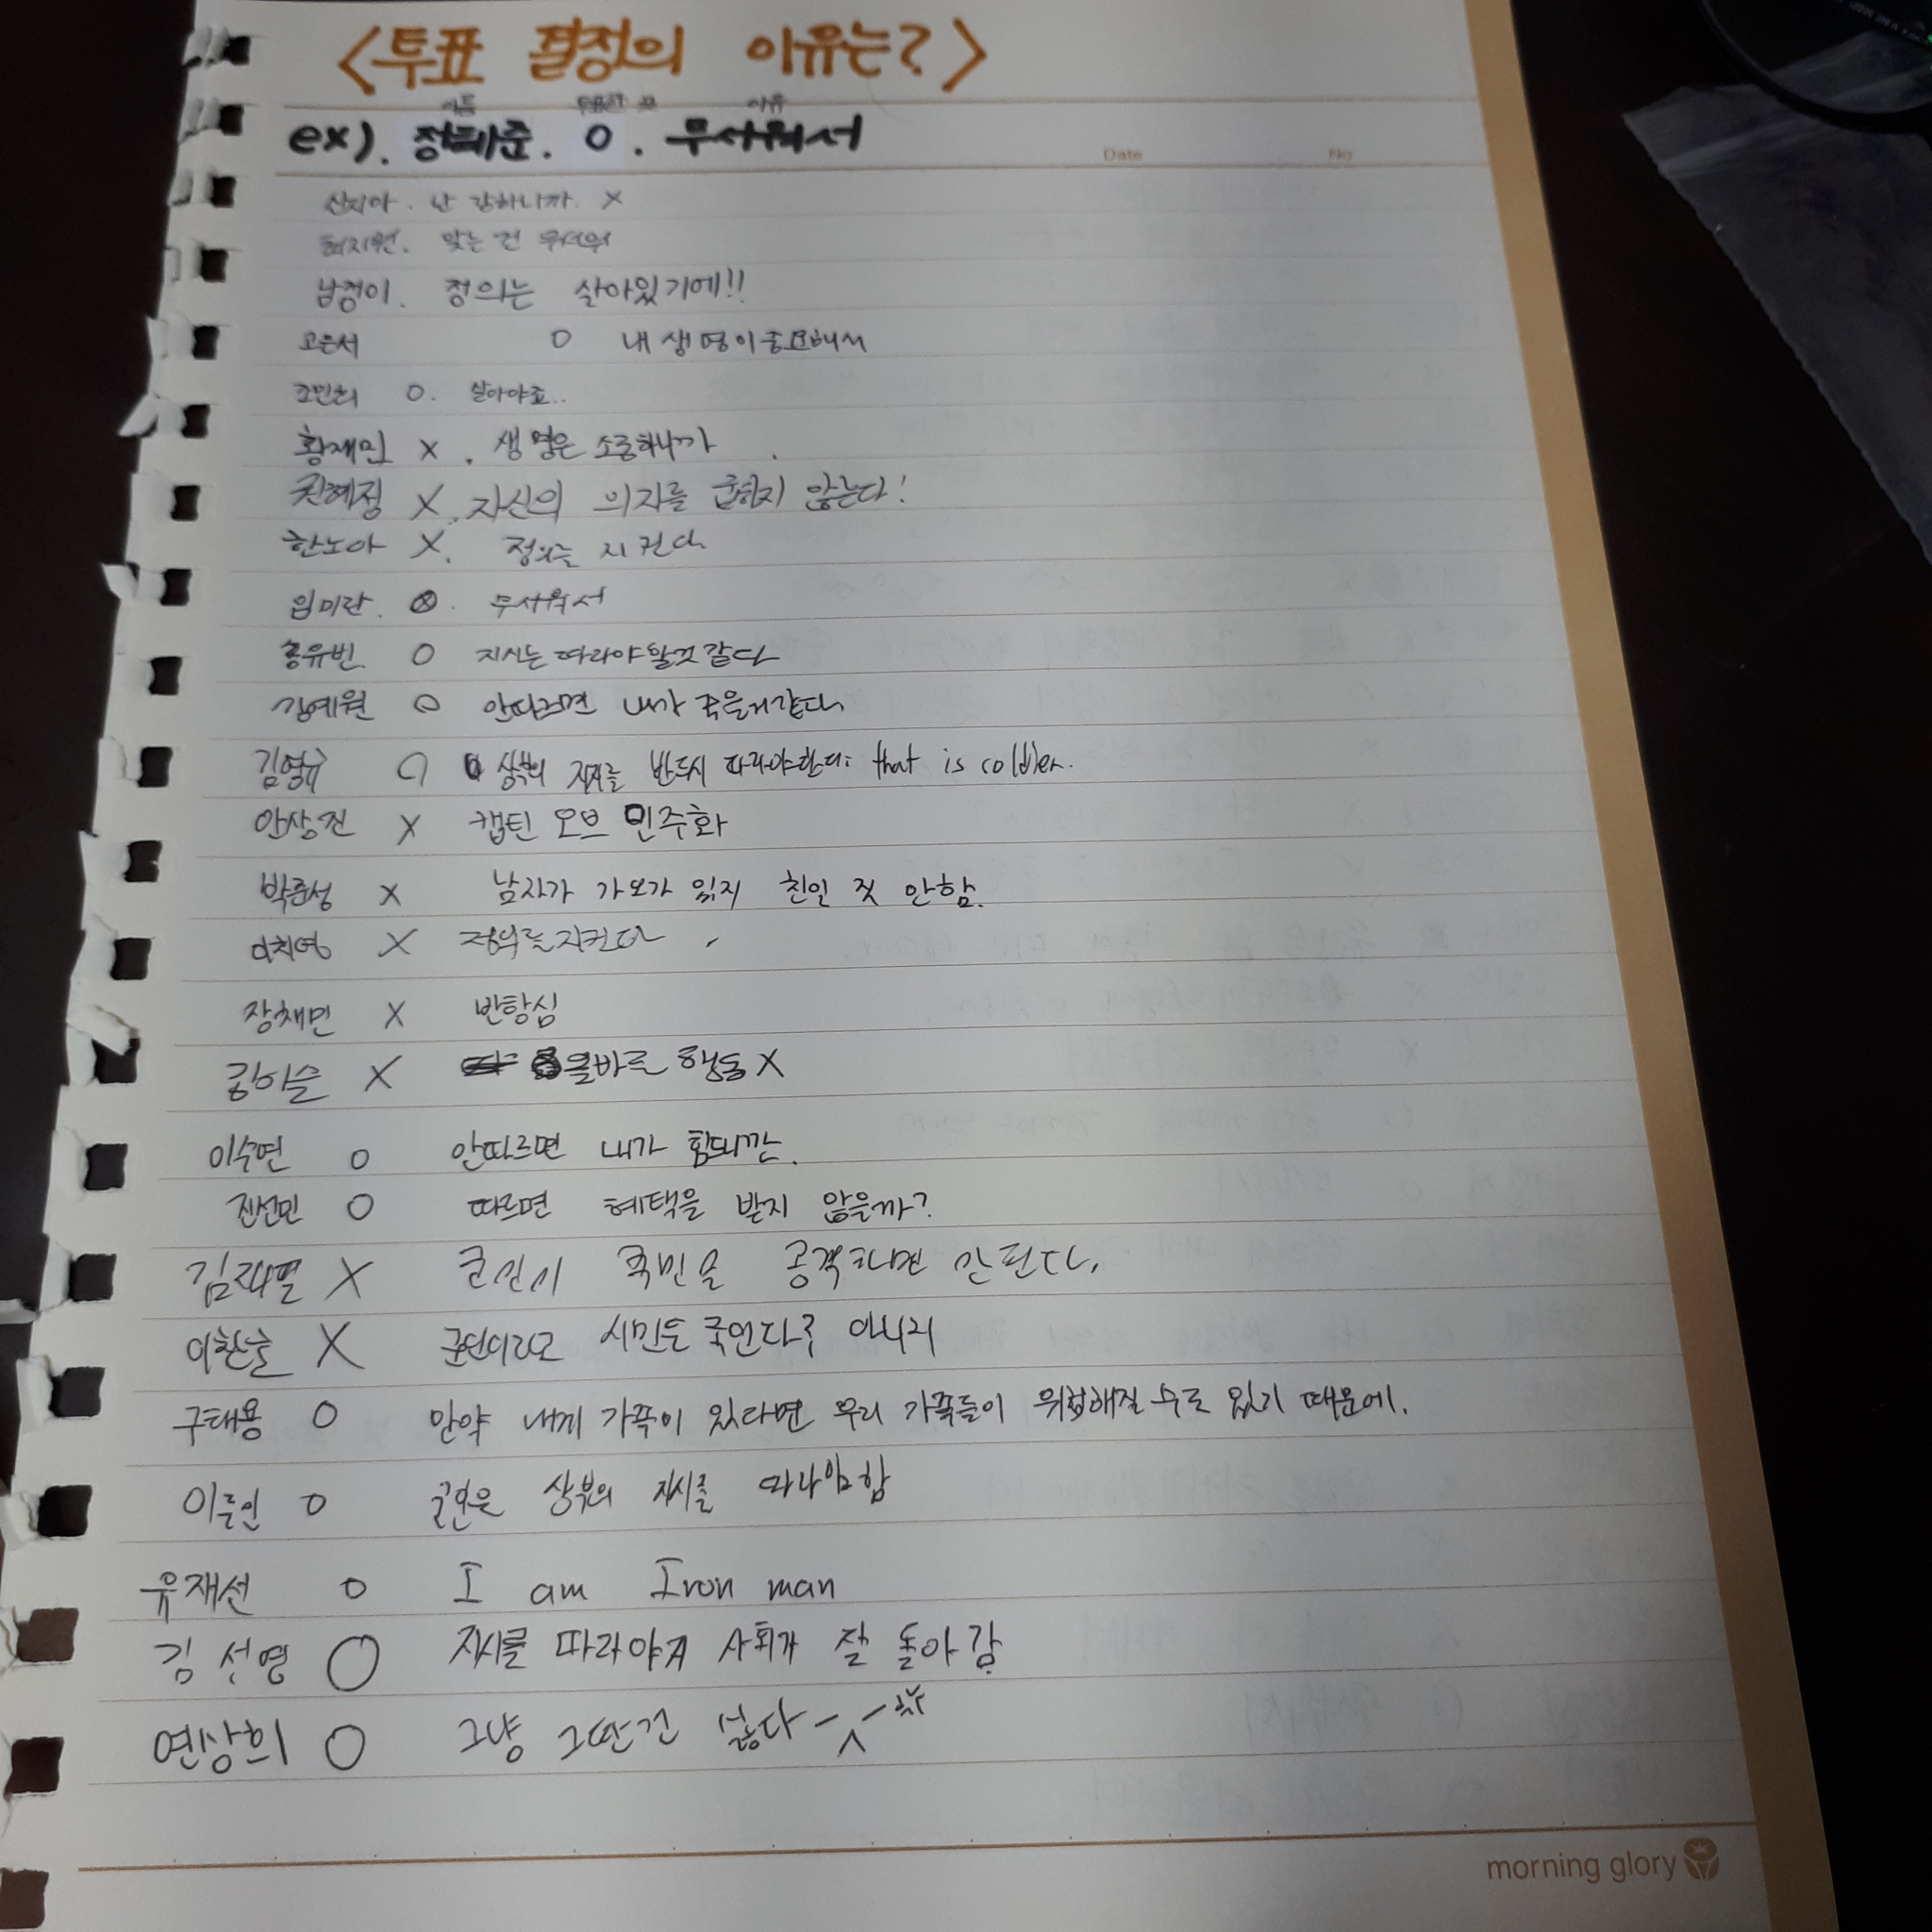 <투표 결정의 이유는?>
이름 투표한 곳 이유
ex). 정태준. O. 무서워서
Date No
신지아. 난 강하니까. X
최지원. 맞는 건 무서워
남정이. 정의는 살아있기에!!
고은서 O 내 생명이 중요해서
조민희 O. 살아야죠..
황재민 X. 생명은 소중하니까
권혜정 X. 자신의 의지를 굽히지 않는다!
한노아 X. 정의는 지킨다
임미란. ⊗. 무서워서
홍유빈 O 지시는 따라야 할것 같다
김예원 O 안따르면 내가 죽을거같다.
김영규 O 상부의 지시를 반드시 따라야한다: that is coldier.
안상진 X 캡틴 오브 민주화
박준성 X 남자가 가오가 있지 친일 짓 안함.
이치영 X 정의를 지킨다
장채민 X 반항심
이슬 X 올바른 행동 X
이수연 O 안따르면 내가 힘드니깐.
진선민 O 따르면 혜택을 받지 않을까?
김재필 X 군인이 국민을 공격하면 안된다.
이한솔 X 군인이라고 시민을 죽인다? 아니지
구태용 O 만약 내게 가족이 있다면 우리 가족들이 위험해질 수도 있기 때문에.
이륜인 O 군인은 상부의 지시를 따라야함
유재선 O I am Iron man
김선영 O 지시를 따라야지 사회가 잘 돌아감
연상희 O 그냥 그딴건 싫다
morning glory